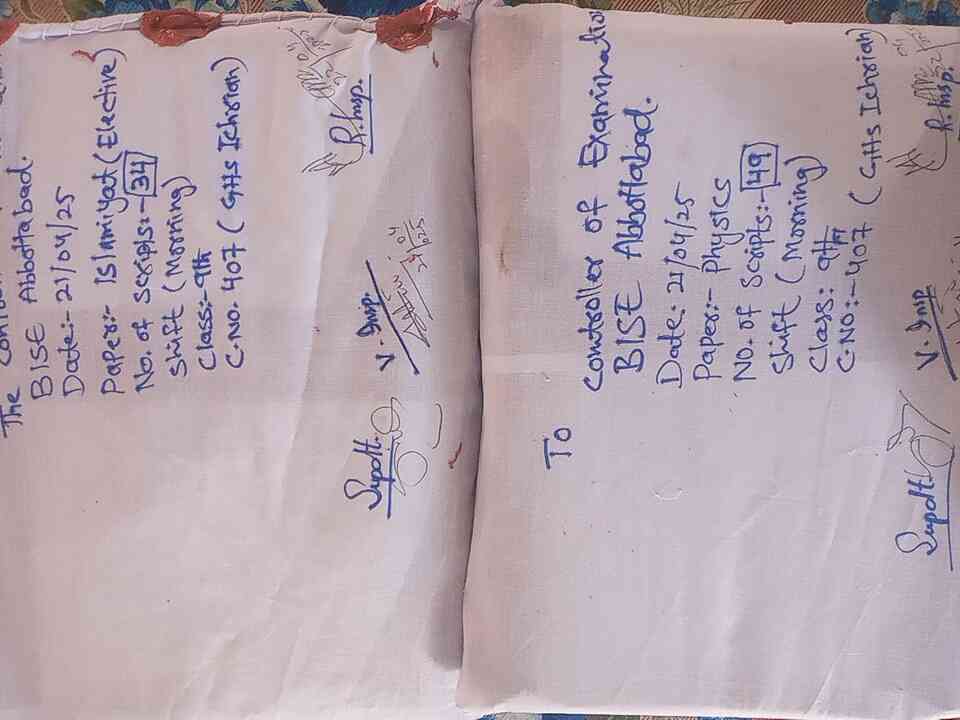 The
BISE Abbottabad.
Date:- 21/04/25
Paper:- Islamiyat (Elective)
No. of scripts:- 34
Shift (Morning)
Class:- 9th
C.NO. 407 (GHS Ichrian)
Supdt.
V. Insp.
R. Insp.
To
Controller of Examination
BISE Abbottabad.
Date: 21/04/25
Paper:- Physics
No. of Scripts:- 49
Shift (Morning)
Class: 9th
C.NO:- 407 (GHS Ichrian)
Supdt.
V. Insp
R. Insp.